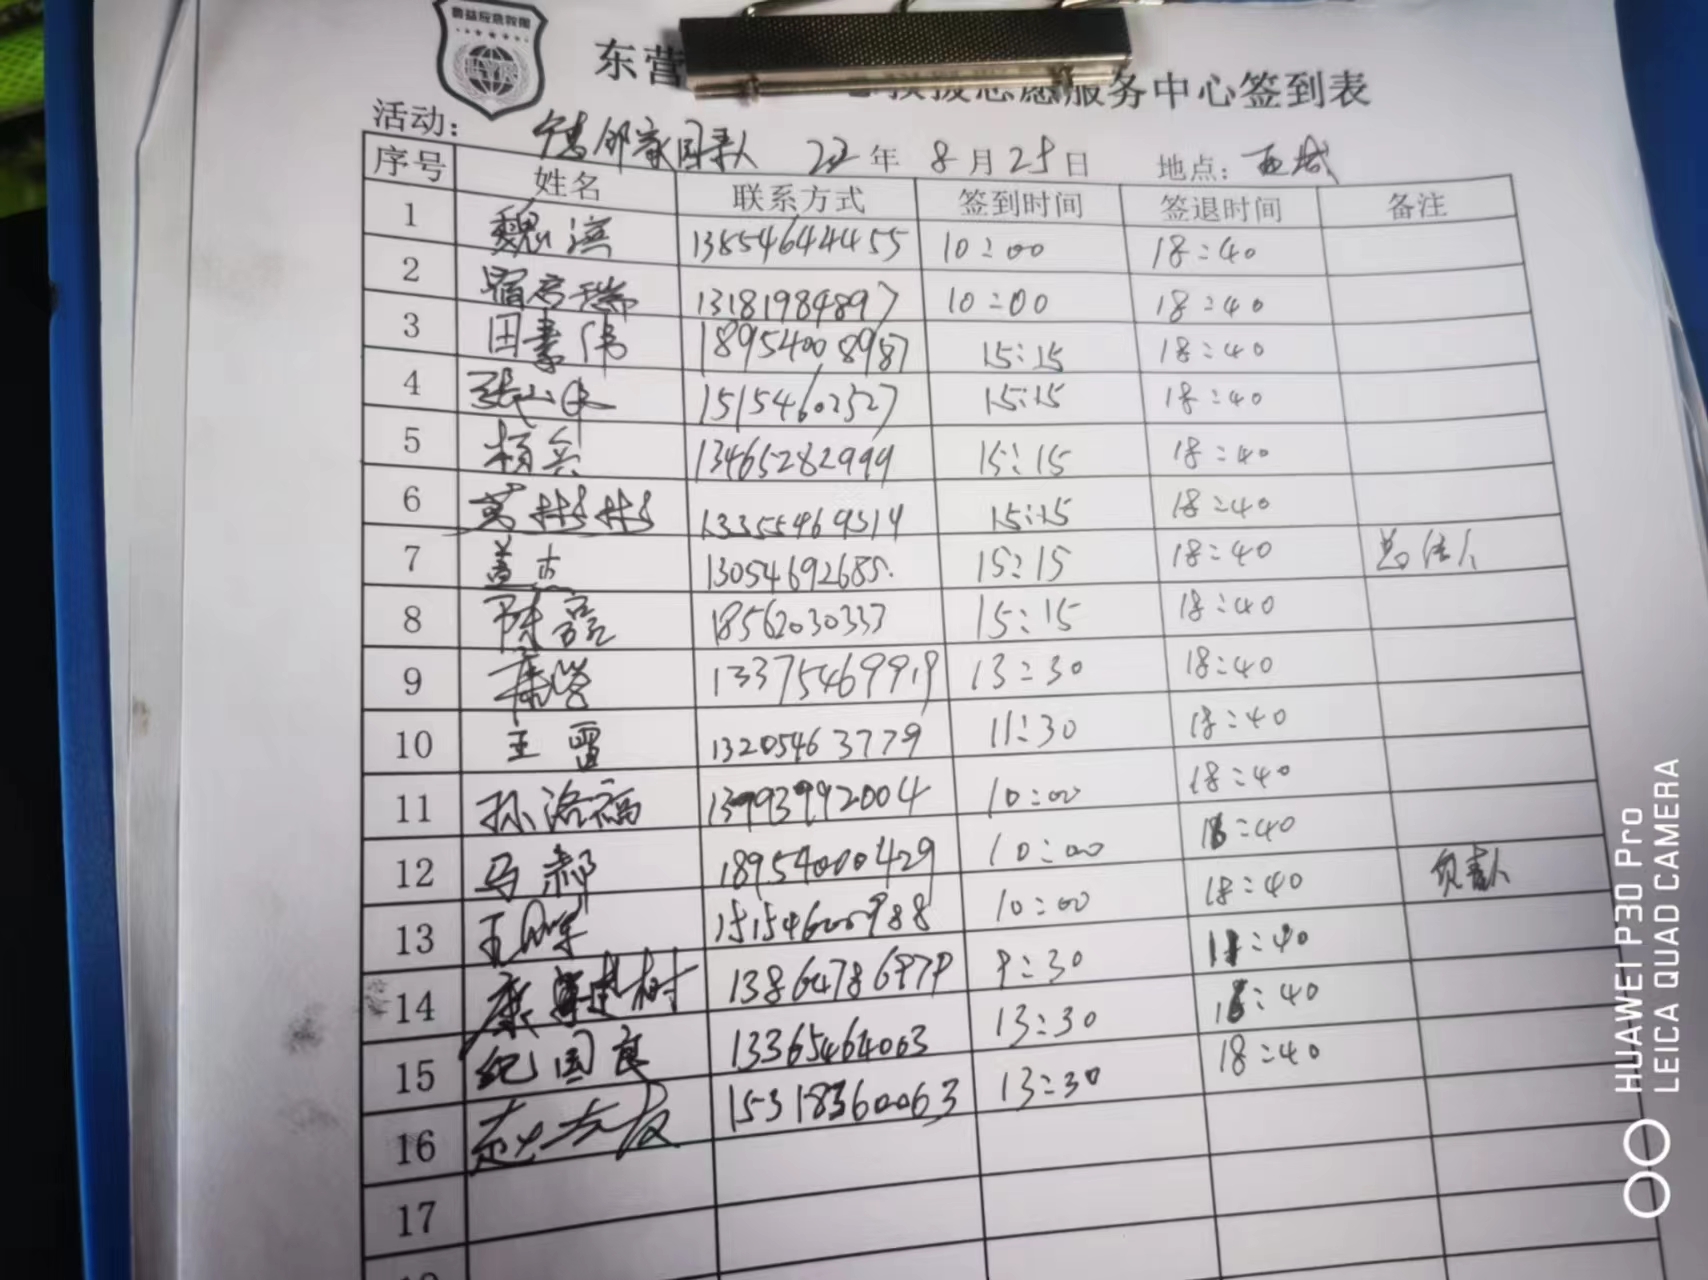 鲁益应急救援
东营 服务中心签到表
活动: 22年 8月25日 地点: 西城
序号 姓名 联系方式 签到时间 签退时间 备注
1 魏滨 13854644455 10:00 18:40
2 13181984897 10:00 18:40
3 田素伟 18954008987 15:15 18:40
4 15154602527 15:15 18:40
5 杨兵 13465282999 15:15 18:40
6 15:15 18:40
7 盖杰 13054692685 15:15 18:40
8 陈磊 18562030333 15:15 18:40
9 13375469919 13:30 18:40
10 王雷 13205463779 11:30 18:40
11 孙洛福 10:00 18:40
12 马郝 18954000429 10:00 18:40
13 15154600988 10:00 18:40 负责人
14 9:30
15 纪国良 13365464063 13:30 18:40
16 15318360063 13:30 18:40
17
HUAWEI P30 Pro
LEICA QUAD CAMERA